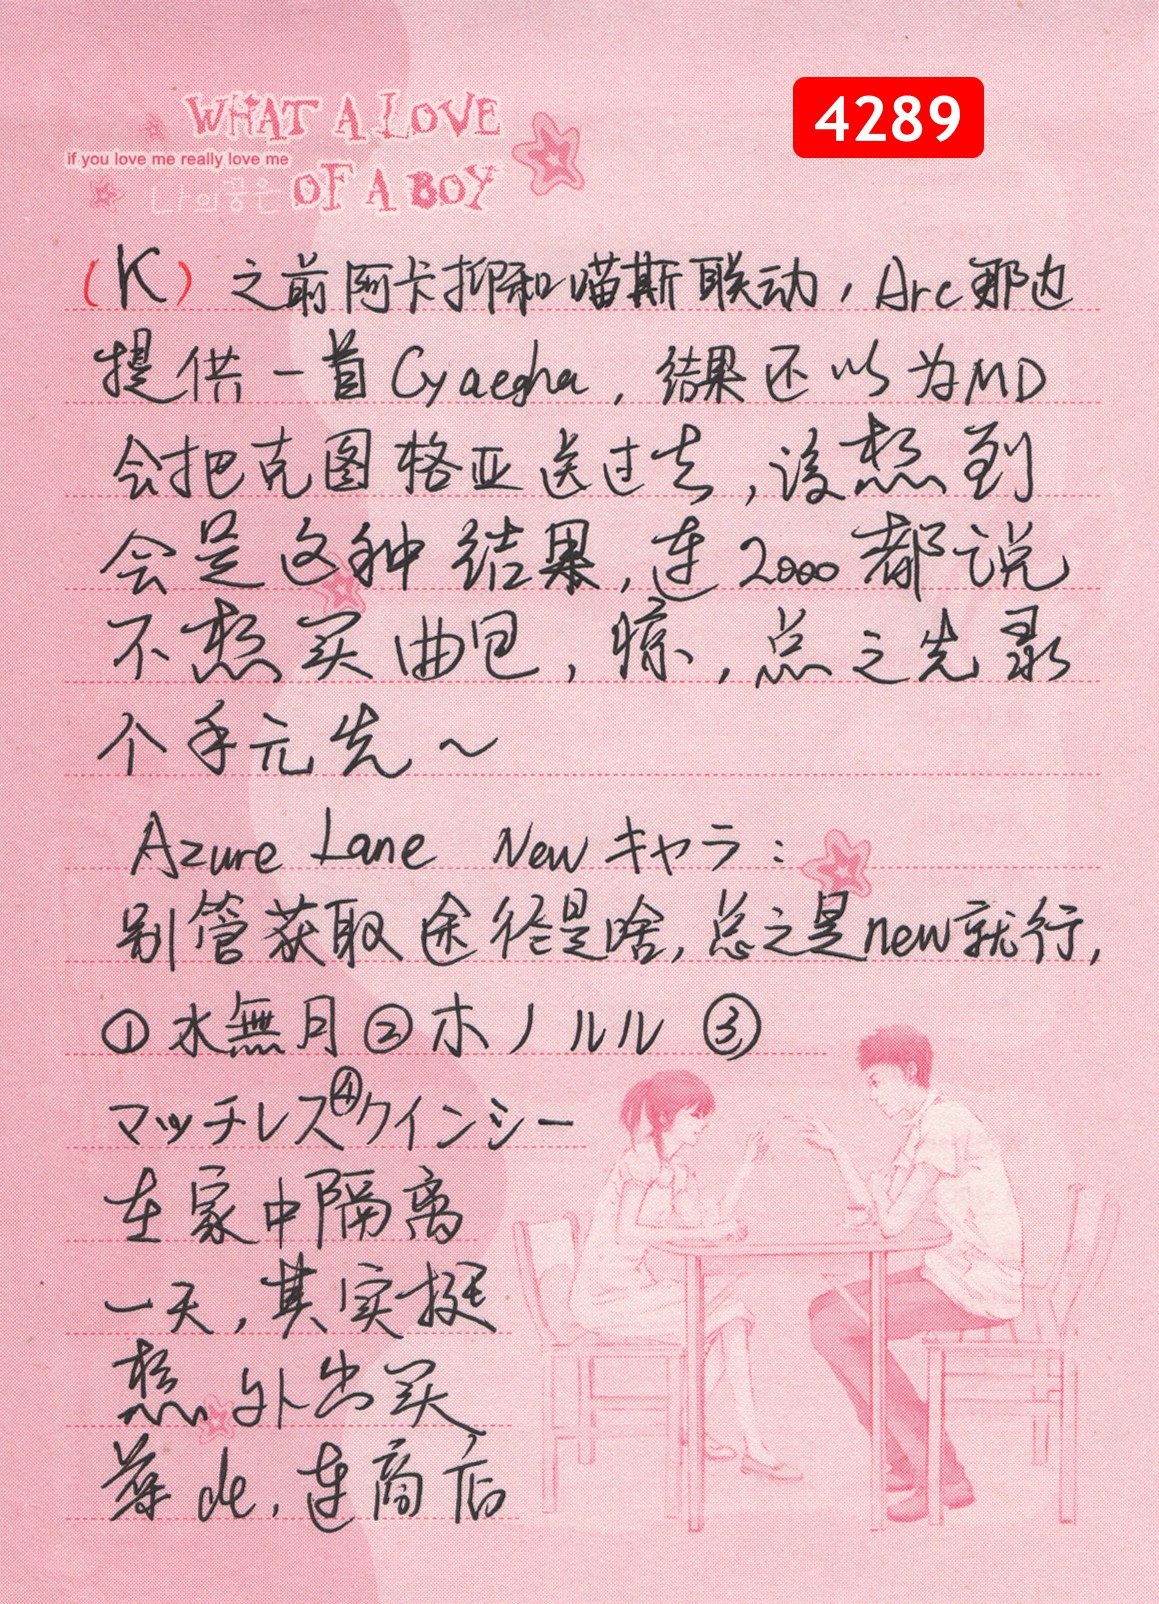 4289
WHAT A LOVE
if you love me really love me
나의꿈은 OF A BOY
（K）之前阿卡抑和喵斯联动，Arc那边
提供一首Cyaegha，结果还以为MD
会把克图格亚送过去，没想到
会是这种结果，连2000都说
不想买曲包，惊，总之先录
个手元先～
Azure Lane New キャラ：
别管获取途径是啥，总之是new就行，
①水無月②ホノルル③
マッチレス④クインシー
在家中隔离
一天，其实挺
想外出买
de，连商店